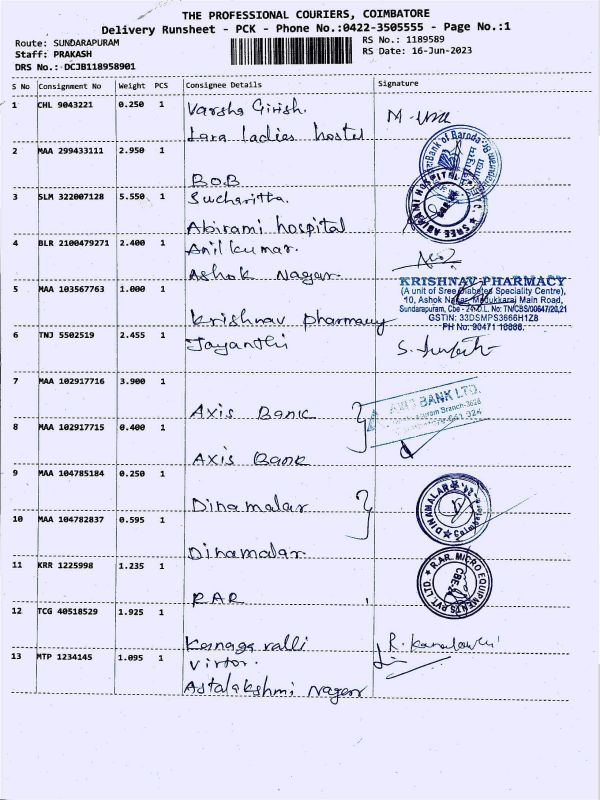 THE PROFESSIONAL COURIERS, COIMBATORE
Delivery Runsheet - PCK - Phone No.:0422-3505555 - Page No.:1
Route: SUNDARAPURAM
RS No.: 1189589
Staff: PRAKASH
RS Date: 16-Jun-2023
DRS No.: DCJB118958901
S No Consignment No Weight PCS Consignee Details Signature
1 CHL 9043221 0.250 1 Varsha Girish.
Lara ladies hostel
2 MAA 299433111 2.950 1
Bank of Baroda
B.O.B
3 SLM 322007128 5.550 1 Sucharitta.
SREE ABIRAMI HOSPITAL
Abirami hospital
4 BLR 2100479271 2.400 1 Anil kumar.
Ashok Nagar.
5 MAA 103567763 1.000 1
KRISHNAV PHARMACY
(A unit of Sree Diabetes Speciality Centre),
10, Ashok Nagar, Madukkarai Main Road,
Sundarapuram, Cbe - 24. D.L. No: TN/CBS/00647/20,21
GSTIN: 33DSMPS3666H1Z8
PH No: 90471 10888.
Krishnav pharmacy
6 TNJ 5502519 2.455 1 Jayanthi
7 MAA 102917716 3.900 1
Axis Bank
AXIS BANK LTD.
8 MAA 102917715 0.400 1
Axis Bank
9 MAA 104785184 0.250 1
Dinamalar
DINAMALAR
10 MAA 104782837 0.595 1
Dinamalar
11 KRR 1225998 1.235 1
R.A.R
R.AR. MICRO EQUIPMENTS PVT. LTD.
CBE
12 TCG 40518529 1.925 1
Kanaga valli
13 MTP 1234145 1.095 1 Virtor.
Astalakshmi Nagar